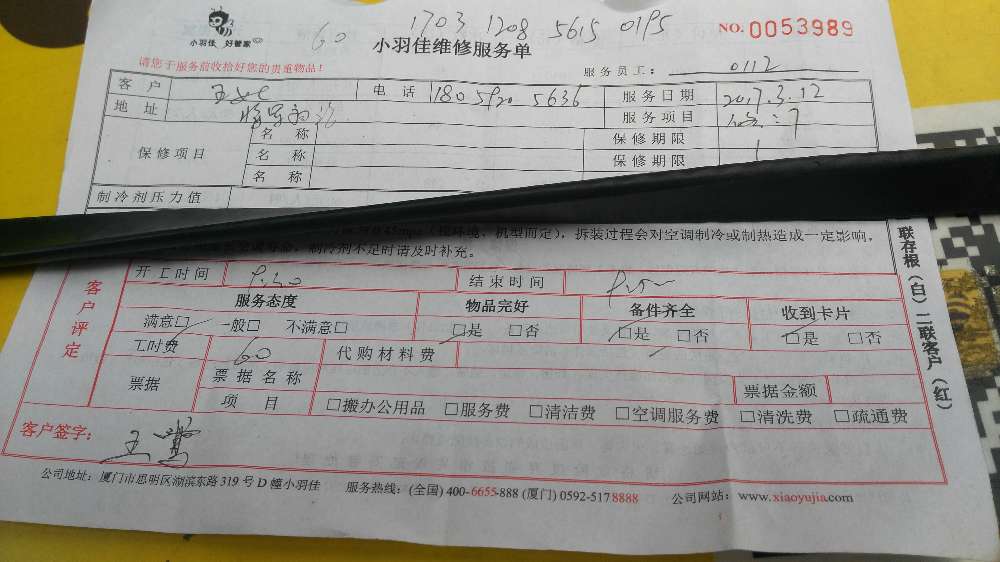 60 1703 1208 5615 0195
小羽佳 好管家
小羽佳维修服务单
NO. 0053989
请您于服务前收拾好您的贵重物品!
服务员工: 0112
客户 电话 180 5920 5636 服务日期 2017.3.12
地址 服务项目
保修项目
名称 保修期限
名称 保修期限
名称
制冷剂压力值
(视环境、机型而定),拆装过程会对空调制冷或制热造成一定影响,
制冷剂不足时请及时补充。
客户评定
开工时间 结束时间
服务态度 物品完好 备件齐全 收到卡片
满意□ 一般□ 不满意□ □是 □否 □是 □否 □是 □否
工时费 60 代购材料费
票据 票据名称 票据金额
项目 □搬办公用品 □服务费 □清洁费 □空调服务费 □清洗费 □疏通费
客户签字:
公司地址:厦门市思明区湖滨东路 319 号 D 幢小羽佳 服务热线:(全国) 400-6655-888 (厦门) 0592-5178888 公司网站:www.xiaoyujia.com
联存根(白)二联客户(红)